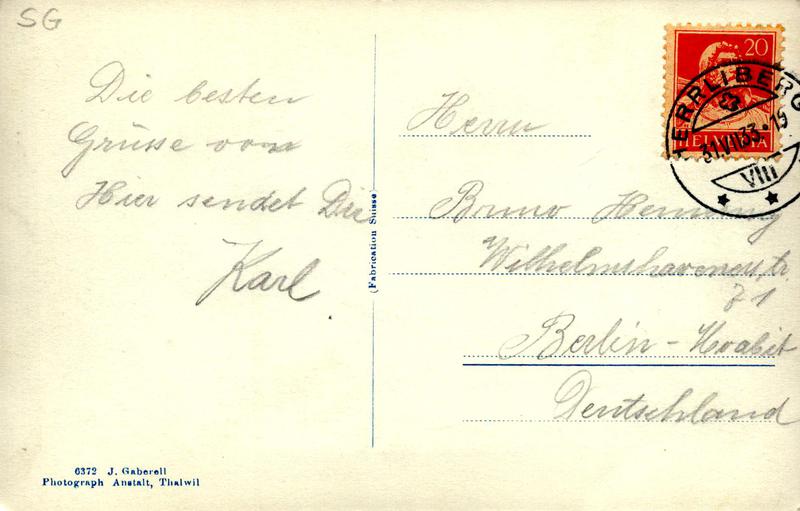 SG
Die besten
Grüsse von
Hier sendet Dir
Karl
(Fabrication Suisse)
6372 J. Gaberell
Photograph Anstalt, Thalwil
20
HELVETIA
HERRLIBERG
31.VII.33.19
VIII
Herrn
Bruno Hennning
Wilhelmshavenerstr.
71
Berlin-Moabit
Deutschland